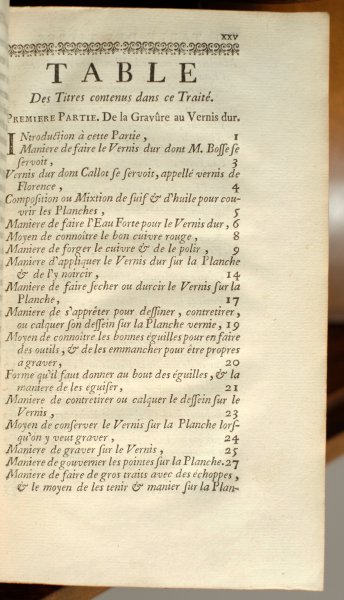 xxv
TABLE
Des Titres contenus dans ce Traité.
PREMIERE PARTIE. De la Gravûre au Vernis dur.
INtroduction à cette Partie, 1
Maniere de faire le Vernis dur dont M. Bosse se
servoit, 3
Vernis dur dont Callot se servoit, appellé vernis de
Florence, 4
Composition ou Mixtion de suif & d'huile pour cou-
vrir les Planches, 5
Maniere de faire l'Eau Forte pour le Vernis dur, 6
Moyen de connoitre le bon cuivre rouge, 8
Maniere de forger le cuivre & de le polir, 9
Maniere d'appliquer le Vernis dur sur la Planche
& de l'y noircir, 14
Maniere de faire secher ou durcir le Vernis sur la
Planche, 17
Maniere de s'apprêter pour dessiner, contretirer,
ou calquer son dessein sur la Planche vernie, 19
Moyen de connoitre les bonnes éguilles pour en faire
des outils, & de les emmancher pour être propres
a graver, 20
Forme qu'il faut donner au bout des éguilles, & la
maniere de les éguiser, 21
Maniere de contretirer ou calquer le dessein sur le
Vernis, 23
Moyen de conserver le Vernis sur la Planche lors-
qu'on y veut graver, 24
Maniere de graver sur le Vernis, 25
Maniere de gouverner les pointes sur la Planche. 27
Maniere de faire de gros traits avec des échoppes,
& le moyen de les tenir & manier sur la Plan-